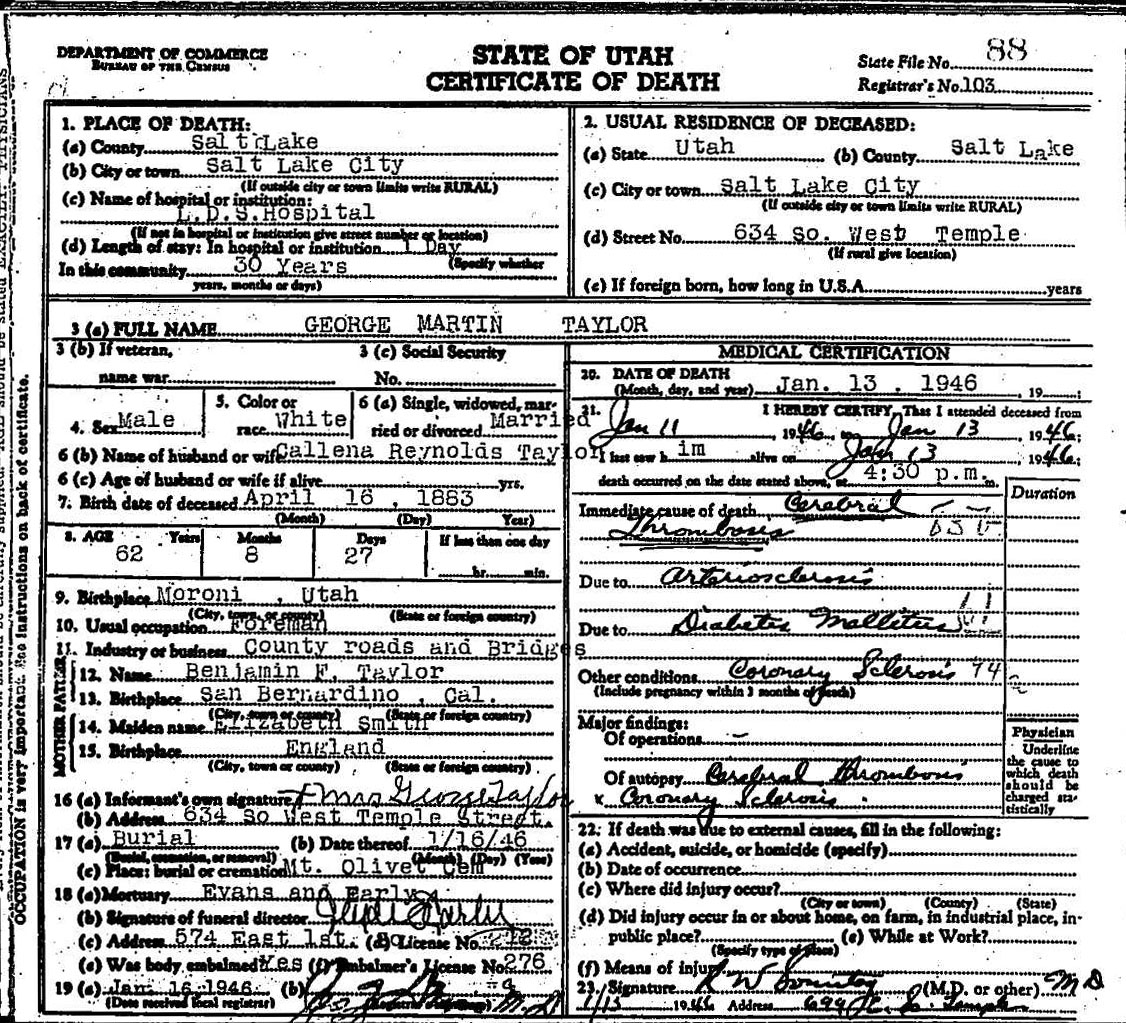 DEPARTMENT OF COMMERCE
BUREAU OF THE CENSUS
STATE OF UTAH
CERTIFICATE OF DEATH
State File No. 88
Registrar's No. 103
1. PLACE OF DEATH:
(a) County Salt Lake
(b) City or town Salt Lake City
(If outside city or town limits write RURAL)
(c) Name of hospital or institution:
L.D.S. Hospital
(If not in hospital or institution give street number or location)
(d) Length of stay: In hospital or institution 1 Day
(Specify whether
In this community 30 Years
years, months or days)
2. USUAL RESIDENCE OF DECEASED:
(a) State Utah (b) County Salt Lake
(c) City or town Salt Lake City
(If outside city or town limits write RURAL)
(d) Street No. 634 So. West Temple
(If rural give location)
(e) If foreign born, how long in U.S.A. years
3 (a) FULL NAME GEORGE MARTIN TAYLOR
3 (b) If veteran,
name war
3 (c) Social Security
No.
4. Sex Male
5. Color or
race White
6 (a) Single, widowed, mar-
ried or divorced Married
6 (b) Name of husband or wife Callena Reynolds Taylor
6 (c) Age of husband or wife if alive yrs.
7. Birth date of deceased April 16, 1883
(Month) (Day) Year)
8. AGE Years Months Days If less than one day
62 8 27
hr. min.
9. Birthplace Moroni, Utah
(City, town, or county) (State or foreign country)
10. Usual occupation Foreman
11. Industry or business County roads and Bridges
FATHER
12. Name Benjamin F. Taylor
13. Birthplace San Bernardino, Cal.
(City, town or county) (State or foreign country)
MOTHER
14. Maiden name Elizabeth Smith
15. Birthplace England
(City, town or county) (State or foreign country)
16 (a) Informant's own signature Mrs George Taylor
(b) Address 634 So West Temple Street.
17 (a) Burial (b) Date thereof 1/16/46
(Burial, cremation, or removal) (Month) (Day) (Year)
(c) Place: burial or cremation Mt. Olivet Cem
18 (a) Mortuary Evans and Early
(b) Signature of funeral director
(c) Address 574 East 1st. So (d) License No.
(e) Was body embalmed Yes (f) Embalmer's License No 276
19 (a) Jan. 16, 1946 (b)
(Date received local registrar)
MEDICAL CERTIFICATION
20. DATE OF DEATH
(Month, day, and year) Jan. 13, 1946, 19 ;
21. I HEREBY CERTIFY, That I attended deceased from
Jan 11, 1946 to Jan 13 1946;
I last saw h im alive on Jan 13 1946;
death occurred on the date stated above, at 4:30 p.m. m.
Duration
Immediate cause of death Cerebral
Thrombosis
Due to Arteriosclerosis
Due to Diabetes Mallitus
Other conditions Coronary Sclerosis 94
(Include pregnancy within 3 months of death)
Major findings:
Of operations –
Of autopsy Cerebral thrombosis
Coronary Sclerosis.
Physician
Underline
the cause to
which death
should be
charged sta-
tistically
22. If death was due to external causes, fill in the following:
(a) Accident, suicide, or homicide (specify)
(b) Date of occurrence
(c) Where did injury occur?
(City or town) (County) (State)
(d) Did injury occur in or about home, on farm, in industrial place, in-
public place? (e) While at Work?
(Specify type of place)
(f) Means of injury
23. Signature (M.D. or other) M D
1/15 1946 Address Temple
OCCUPATION is very important. See instructions on back of certificate.